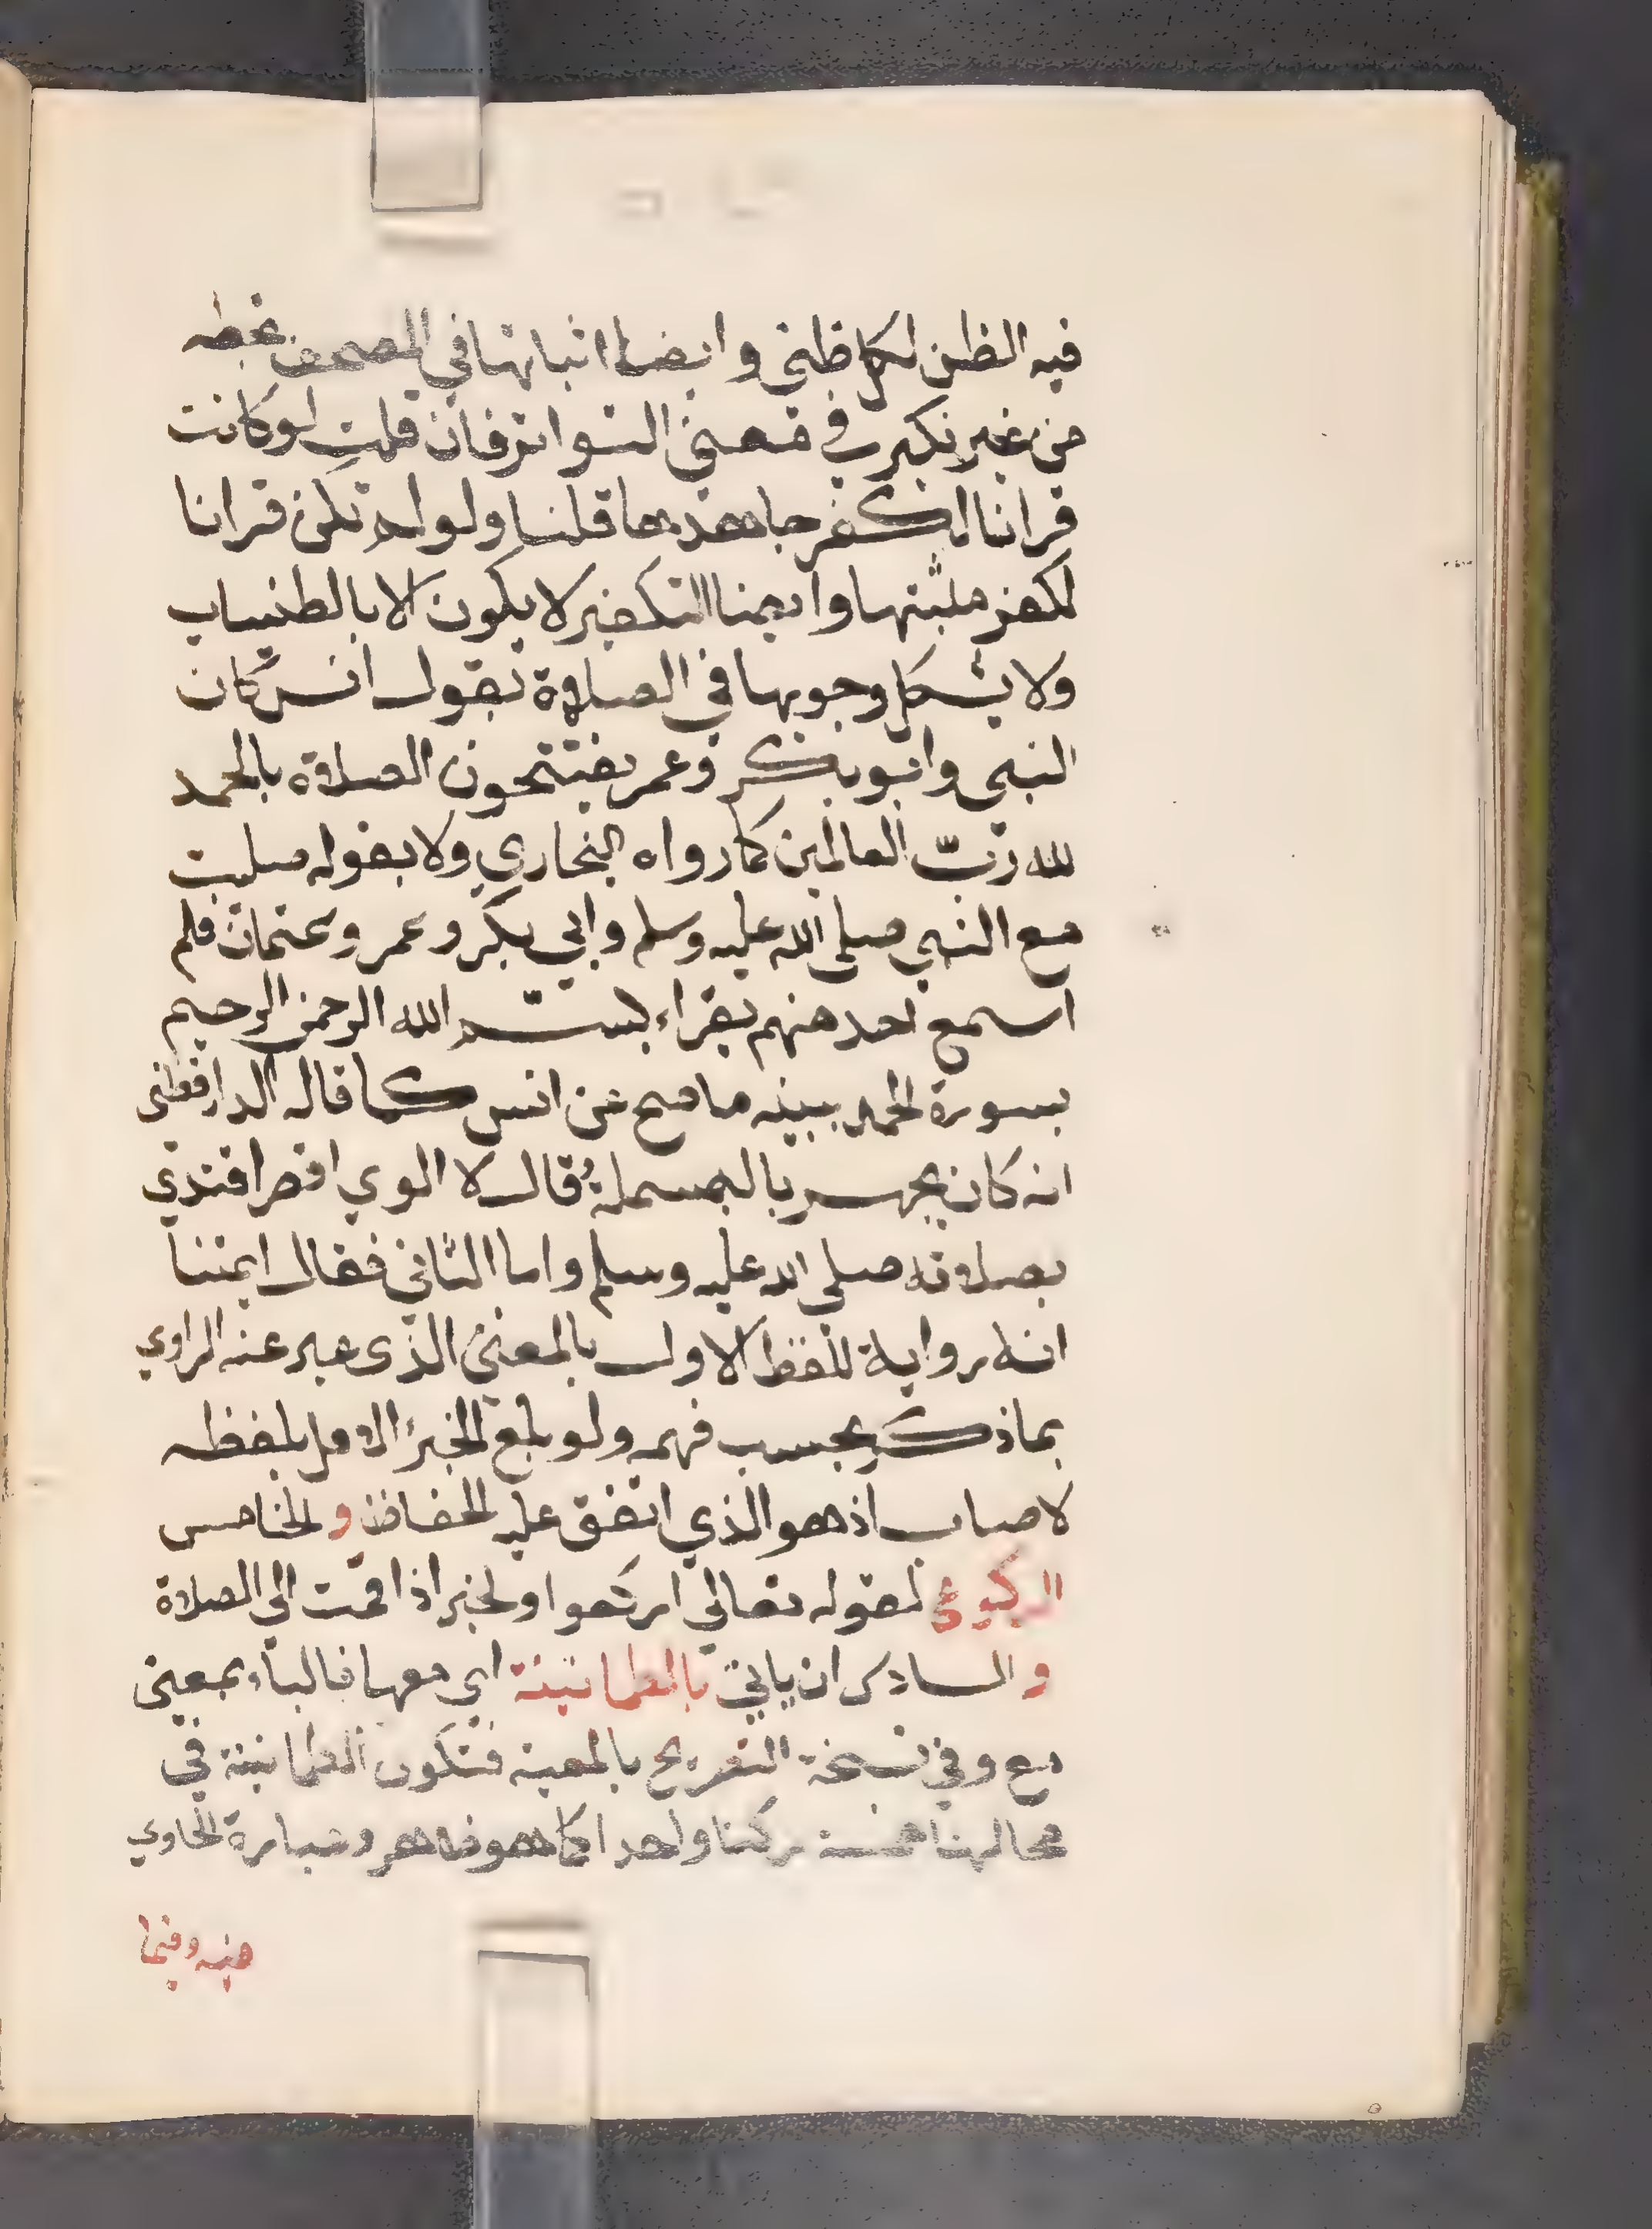 فيه الظن لكل ظني وايضا اثباتها في المصحف بخطه
من غير نكير في معنى التواتر فان قلت لو كانت
قرانا لكفر جاحدها قلنا ولو لم تكن قرانا
لكفر مثبتها وايضا التكفير لا يكون الا بالظنيات
ولا يشكل وجوبها في الصلاة بقول انس كان
النبي وابو بكر وعمر يفتتحون الصلاة بالحمد
لله رب العالمين كما رواه البخاري ولا بقوله صليت
مع النبي صلى الله عليه وسلم وابي بكر وعمر وعثمان فلم
اسمع احد منهم يقراء بسم الله الرحمن الرحيم
بسورة الحمد يبينه ما صح عن انس كما قاله الدارقطني
انه كان يجهر بالبسملة وقال لا الوي ان اقتدي
بصلاته صلى الله عليه وسلم واما الثاني فقال ايمتنا
انه رواية للفظ الاول بالمعنى الذي عبر عنه الراوي
بما ذكر بحسب فهمه ولو بلغ الخبر الاول بلفظه
لاصاب اذ هو الذي اتفق عليه الحفاظ والخامس
الركوع لقوله تعالى اركعوا ولخبر اذا قمت الى الصلاة
والسادس ان ياتي بالطمانينة اي معها فالباء بمعنى
مع وفي نسخة التعريح بالمعية فتكون الطمانينة في
محالها ركنا واحدا كما هو ظاهر وعبارة الحاوي
منه وفيما